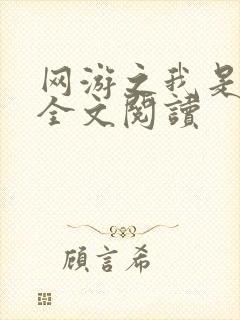 网游之我是
全文閱讀
顧言希